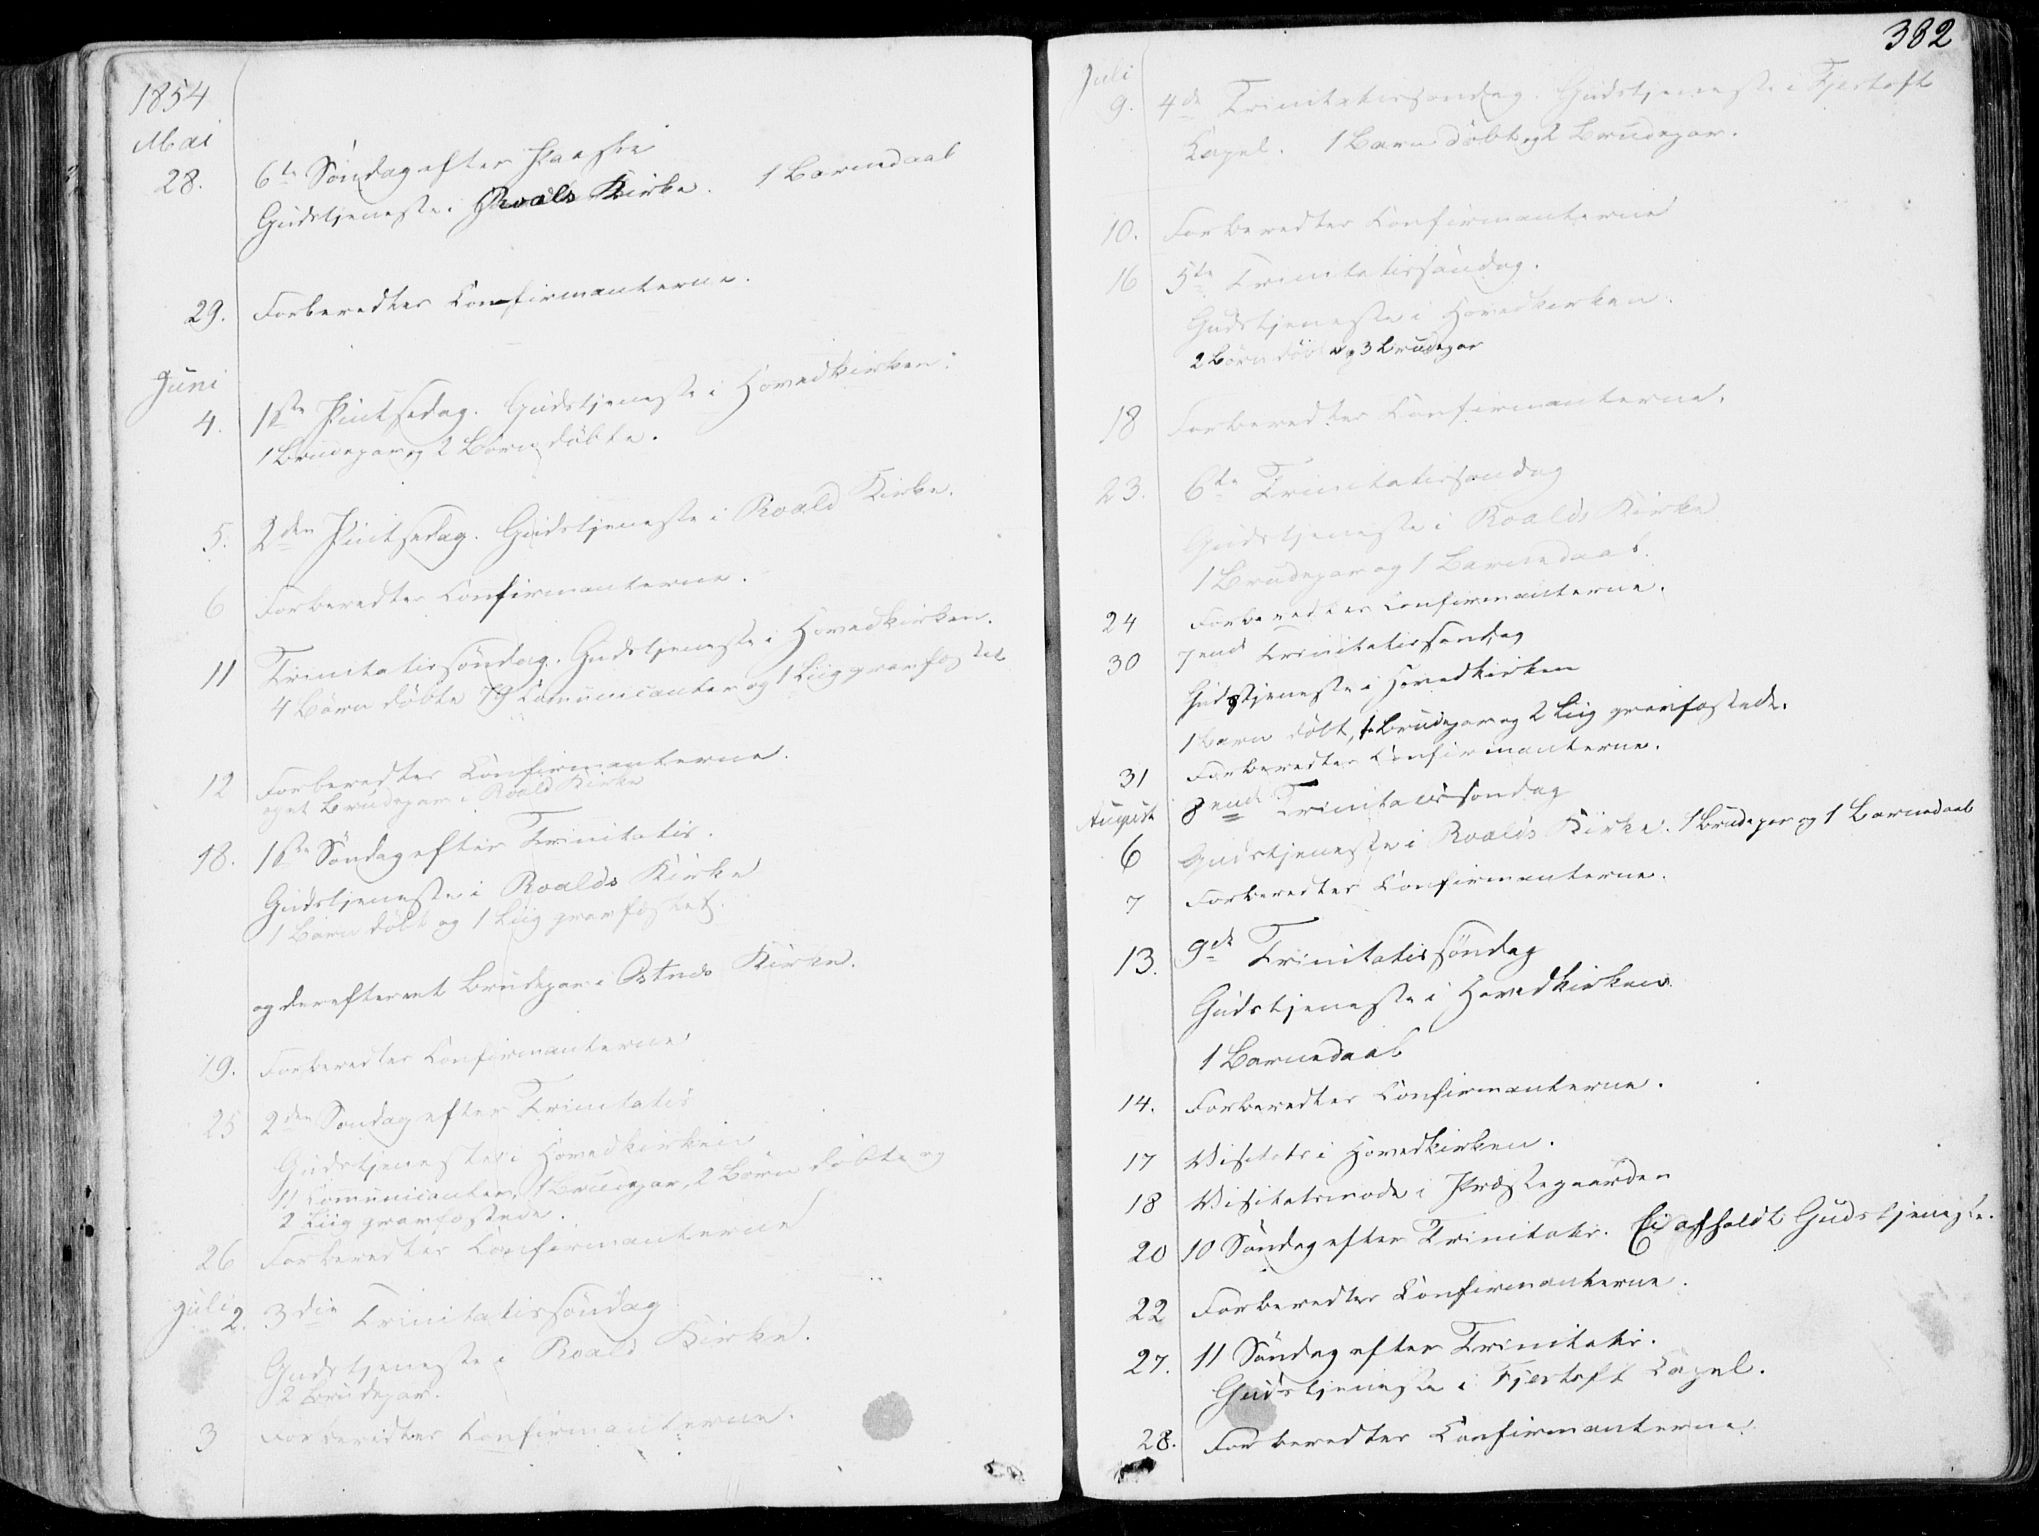 1854
Mai
28. 6te Søndag efter Paaske
Gudstjeneste i Roalds Kirke. 1 Barnedaab
29. Forberedtes Confirmanterne.
Juni
4. 1ste Pintsedag. Gudstjeneste i Hovedkirken.
1 Brudepar og 2 Børn døbte.
5. 2den Pintsedag. Gudstjeneste i Roald Kirke.
6 Forberedtes Confirmanterne.
11 Trinitatissøndag. Gudstjeneste i Hovedkirken.
4 Børn døbte 79 Communicanter og 1 Liig gravfæstet
12 Forberedtes Confirmanterne.
og et Brudepar i Roald Kirke
18. 1ste Søndag efter Trinitatis.
Gudstjeneste i Roalds Kirke
1 Barn døbt og 1 Liig gravfæstet.
og derefter et Brudepar i Østnes Kirke.
19. Forberedtes Confirmanterne
25 2den Søndag efter Trinitatis
Gudstjeneste i Hovedkirken
11 Communicanter, 1 Brudepar, 2 Børn døbte og
2 Liig gravfæstede.
26 Forberedtes Confirmanterne
Juli 2. 3die Trinitatissøndag
Gudstjeneste i Roald Kirke.
2 Brudepar.
3 Forberedtes Confirmanterne.
382
Juli
9. 4de Trinitatissøndag. Gudstjeneste i Fjertoft
Capel. 1 Barn døbt og 2 Brudepar.
10. Forberedtes Confirmanterne
16 5te Trinitatissøndag.
Gudstjeneste i Hovedkirken.
2 Børn døbte og 3 Brudepar
18 Forberedtes Confirmanterne.
23. 6te Trinitatissøndag
Gudstjeneste i Roalds Kirke
1 Brudepar og 1 Barnedaab.
24 Forberedtes Confirmanterne.
30 7ende Trinitatissøndag
Gudstjeneste i Hovedkirken
1 Barn døbt, 1 Brudepar og 2 Liig gravfæstede.
31 Forberedtes Confirmanterne.
August 8ende Trinitatissøndag
6 Gudstjeneste i Roalds Kirke. 1 Brudepar og 1 Barnedaab
7 Forberedtes Confirmanterne.
13. 9de Trinitatissøndag
Gudstjeneste i Hovedkirken
1 Barnedaab
14. Forberedtes Confirmanterne.
17 Visitats i Hovedkirken.
18 Visitatsmøde i Præstegaarden
20 10 Søndag efter Trinitatis. Ei afholdt Gudstjeneste.
22 Forberedtes Confirmanterne.
27. 11 Søndag efter Trinitatis.
Gudstjeneste i Fjertoft Capel.
28. Forberedtes Confirmanterne.